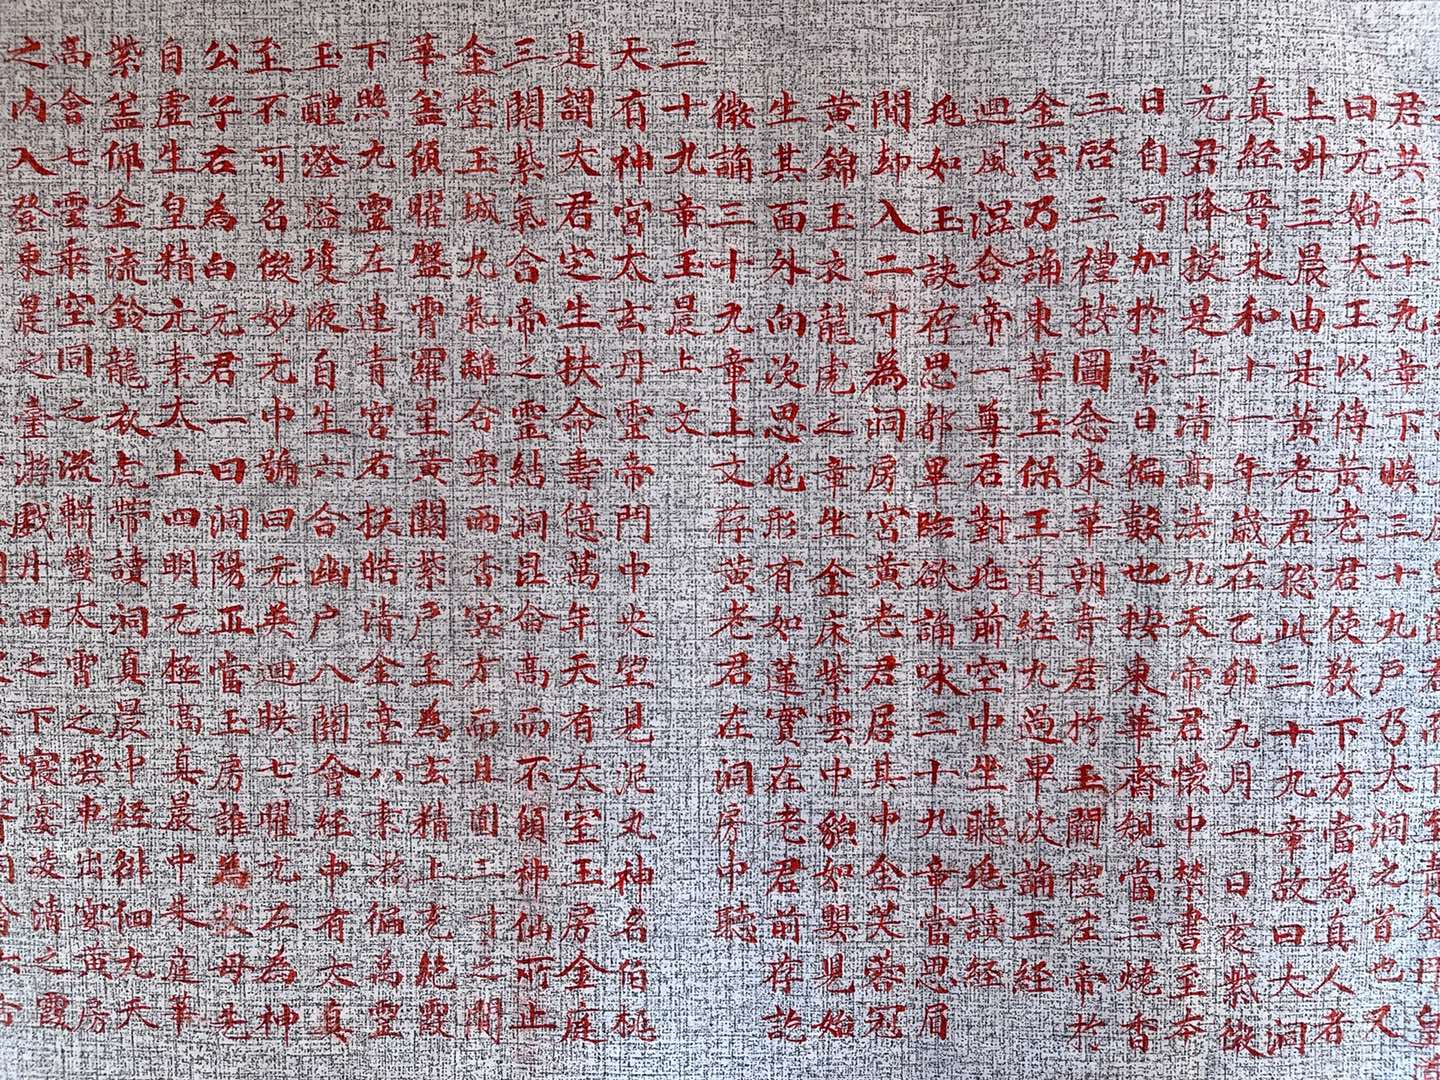 君共三十九章下映三十九戶乃大洞之首也又
曰元始天王以傳黃老君使教下方當為真人者
上升三晨由是黃老君撰此三十九章故曰大洞
真經晉永和十一年歲在乙卯九月一日夜紫微
元君降授是上清高法九天帝君懷中禁書至本
日自可加於常日徧數也按東華齋規當三燒香
三啓三禮按圖念東華朝青君於玉闕禮在帝於
金宮乃誦東華玉保王道經九過畢次誦玉經
迴風混合帝一尊君對兆前空中坐聽兆讀經
兆如玉訣存思都畢臨欲誦詠三十九章當思眉
間却入二寸為洞房宮黃老君居其中金芙蓉冠
黃錦玉衣龍虎之章坐金床紫雲中貌如嬰兒始
生其面外向次思兆形有如蓮實在老君前存訖
微誦三十九章上文存黃老君在洞房中聽
三十九章玉晨上文
天有神宮太玄丹靈帝門中央望見泥丸神名伯桃
是謂大君定生扶命壽億萬年天有太室玉房金庭
三關紫氣合帝之靈結洞昆侖高而不傾神仙所止
金堂玉城九氣離合雲雨杳冥方而且圓三寸之間
華蓋傾曜盤霄羅星黃闕紫戶至為玄精上充絕霞
下照九靈左連青宮右扶皓清金臺八素蕩徧萬靈
玉醴澄溢瓊液自生六合幽戶八關會經中有太真
至不可名微妙无中誦曰元美迴映七曜充左為神
公子右為白元君一曰洞陽正當玉房誰為父母无
自虛生皇精元素太上四明元極高真晨中朱庭華
紫蓋佩金流鈴龍衣虎帶讀洞真晨中經徘徊九天
高會七靈乘空同之流軿轡太霄之雲車出宴黃房
之內入登東晨之臺游戲丹田之下寢宴凌清之霞